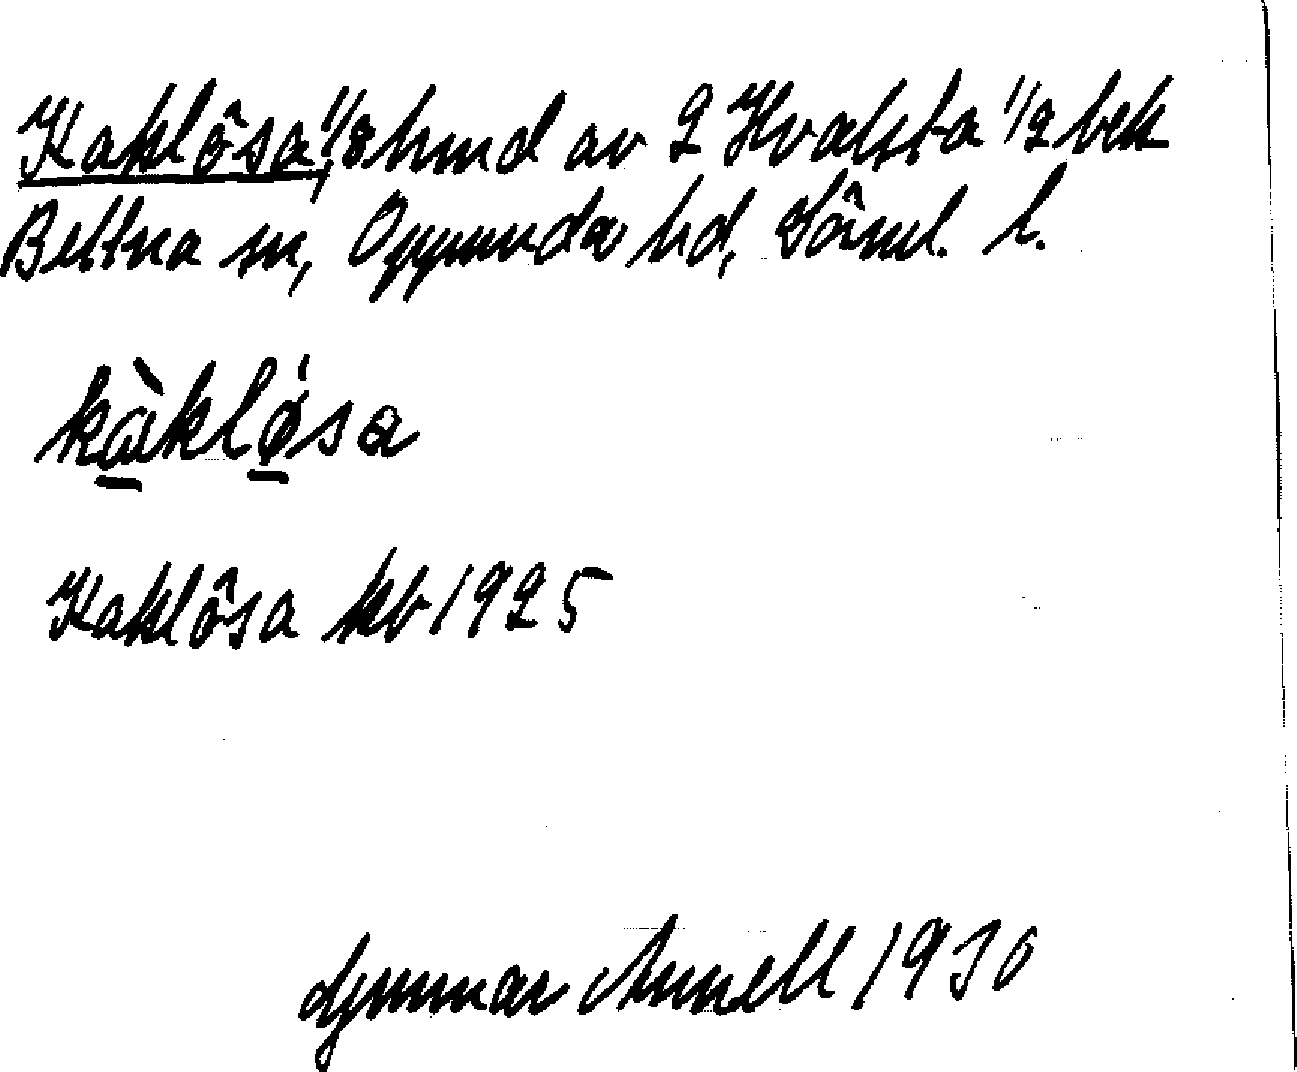 Kaklösa, 1/8 hmd av 2 Hvalsta 1/2 bek
Bettna sn, Oppunda hd, Söml. l.
kàkløsa
Kaklösa kb 1925
Gunnar Annell 1930